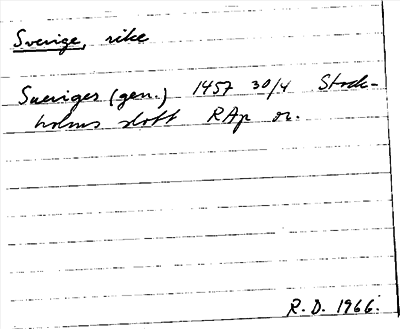 Sverige, rike
Sueriges (gen.) 1457 30/4 Stock-
holms slott RAp or.
R.D. 1966.